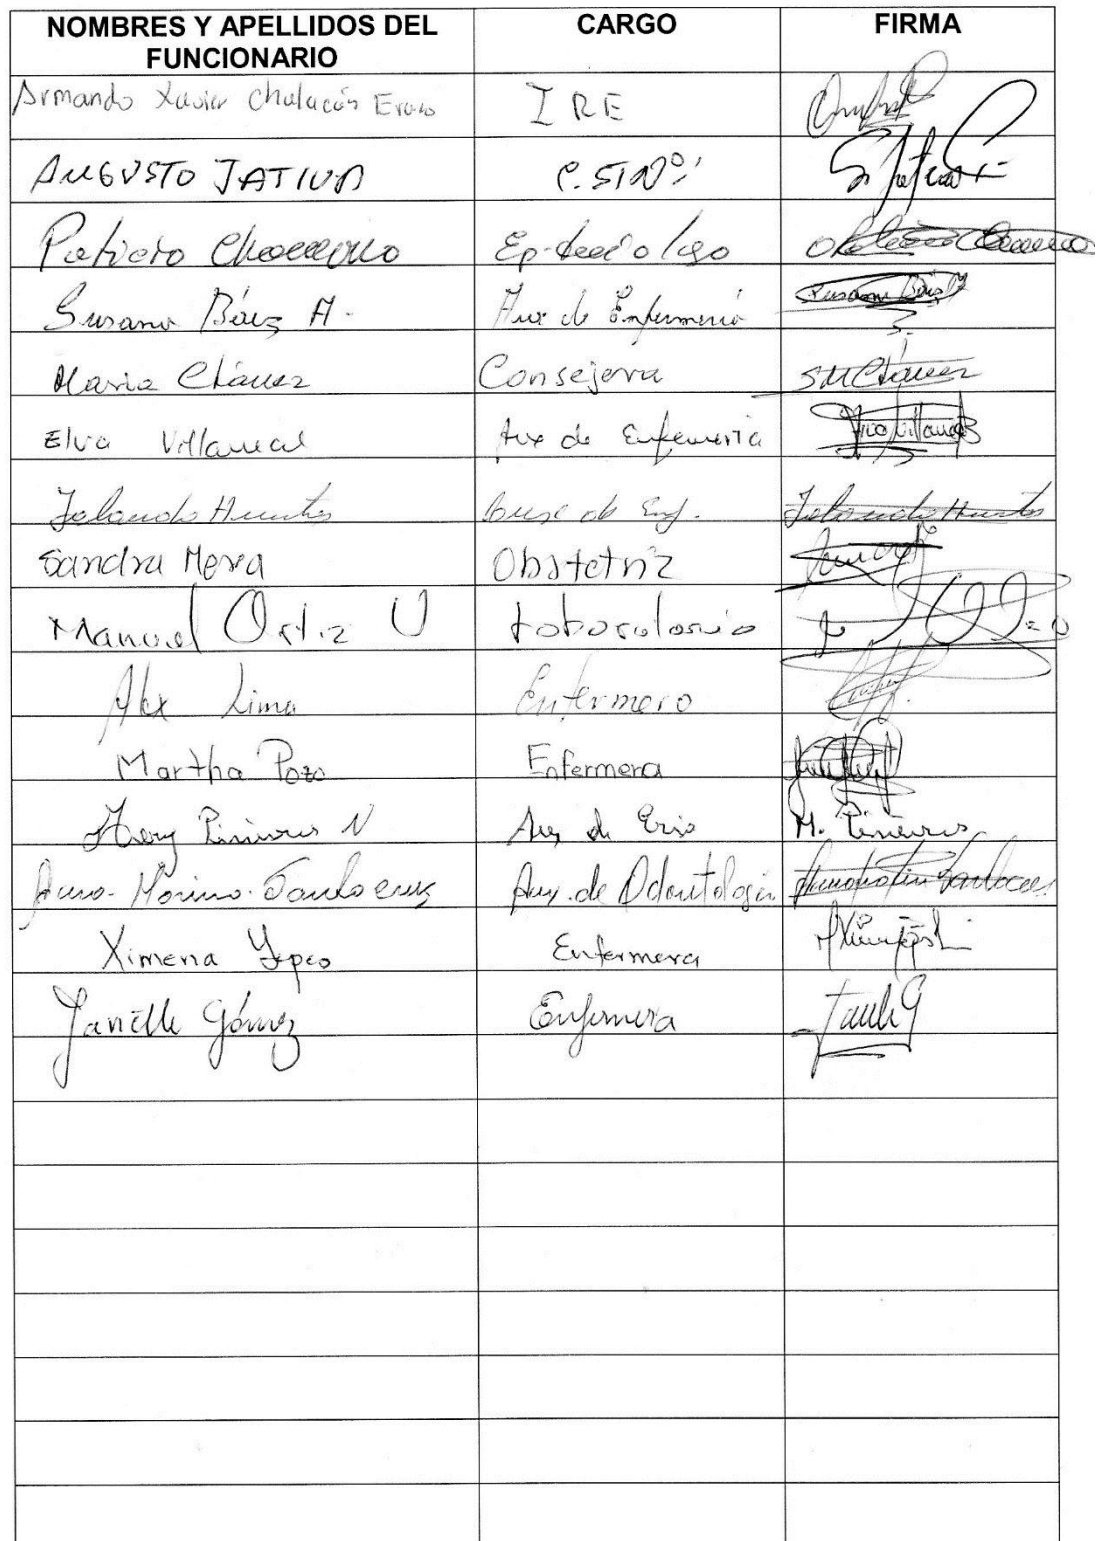 NOMBRES Y APELLIDOS DEL FUNCIONARIO CARGO FIRMA
Armando Xavier Chalacán Erazo IRE
AUGUSTO JATIVA C.S.Nº1
Patricio Epidemiologo
Susana Báez A. Aux de Enfermería Susana Báez
Maria Cháuez Consejera SMCháuez
Elva Villareal Aux de Enfermeria
Yolanda Huertas Auxe de Enf. Yolanda Huertas
Sandra Mera Obstetriz
Manuel Ortiz U Laboratorio
Alex Lima Enfermero
Martha Pozo Enfermera
Aux de M.
Santacruz Aux. de Odontologia
Ximena Yepes Enfermera
Janelle Gómez Enfermera